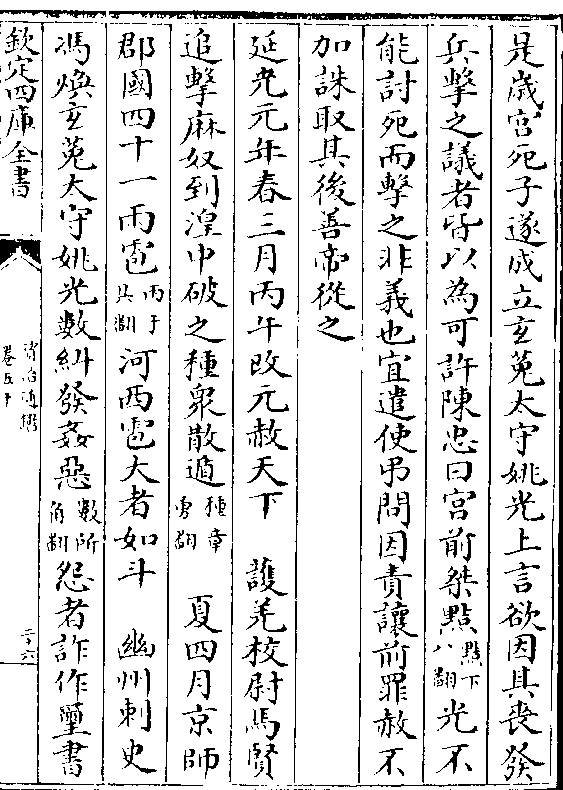 是嵗宫死子遂成立玄菟太守姚光上言欲因其喪發
兵擊之議者皆以為可許陳忠曰宫前桀黠黠下八翻光不
能討死而擊之非義也宜遣使弔問因責讓前罪赦不
加誅取其後善帝從之
延光元年春三月丙午改元赦天下　護羌校尉馬賢
追擊麻奴到湟中破之種衆散遁種章勇翻　夏四月京師
郡國四十一雨雹雨于具翻河西雹大者如斗　幽州刺史
馮煥玄菟太守姚光數糾發姦惡數所角翻怨者詐作璽書
欽定四庫全書
資治通鑑
卷五十
二十六